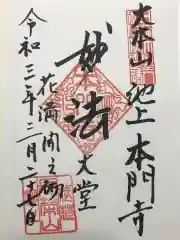 大本山
池上
本門寺
妙法
大堂
花満開之砌
令和三年三月二十七日